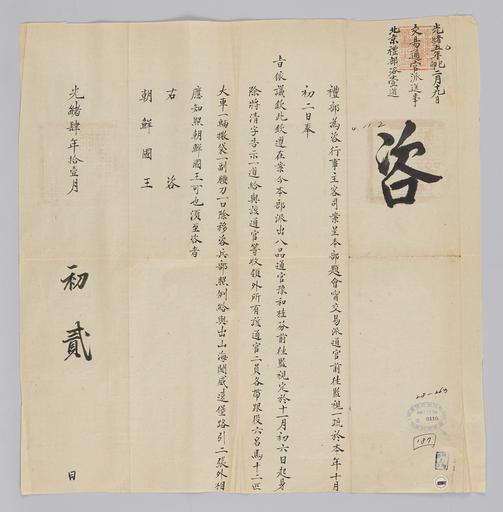 光緒五年己卯二月九日
交易通官派送事
北京禮部咨壹道
咨
禮部為咨行事主客司案呈本部題會甯交易派通官前徃監視一疏於本年十月
初二日奉
旨依議欽此欽遵在案今本部派出八品通官豫和桂芬前徃監視定於十一月初六日起身
除將清字告示一道給與該通官等收領外所有該通官二員各帶跟役六名馬十二匹
大車一輛撒袋一副腰刀一口除移咨兵部照例給與出山海関威遠堡路引二張外相
應知照朝鮮國王可也須至咨者
右咨
朝鮮國王
光緒肆年拾壹月初貳日
187